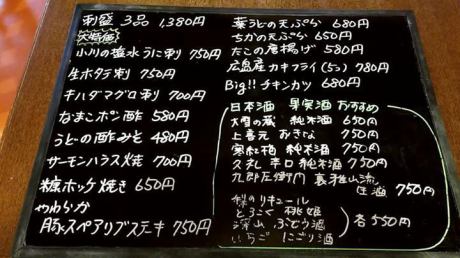 刺盛 3品 1,380円
大特価
小川の塩水うに刺 750円
生ホタテ刺 750円
キハダマグロ刺 700円
なまこポン酢 580円
うどの酢みそ 480円
サーモンハラス焼 700円
糠ホッケ焼き 650円
やわらか
豚スペアリブステーキ 750円
葉うどの天ぷら 680円
ちかの天ぷら 650円
たこの唐揚げ 580円
広島産カキフライ(5コ) 780円
Big!! チキンカツ 680円
日本酒 果実酒 おすすめ
大雪の蔵 純米酒 650円
上喜元 おきな 750円
寒紅梅 純米酒 750円
久礼 辛口 純米酒 750円
九郎左衛門 裏雅山流
生酒 750円
リキュール
とろこく 桃姫
深山 ぶどう酒
いちご にごり酒
各550円